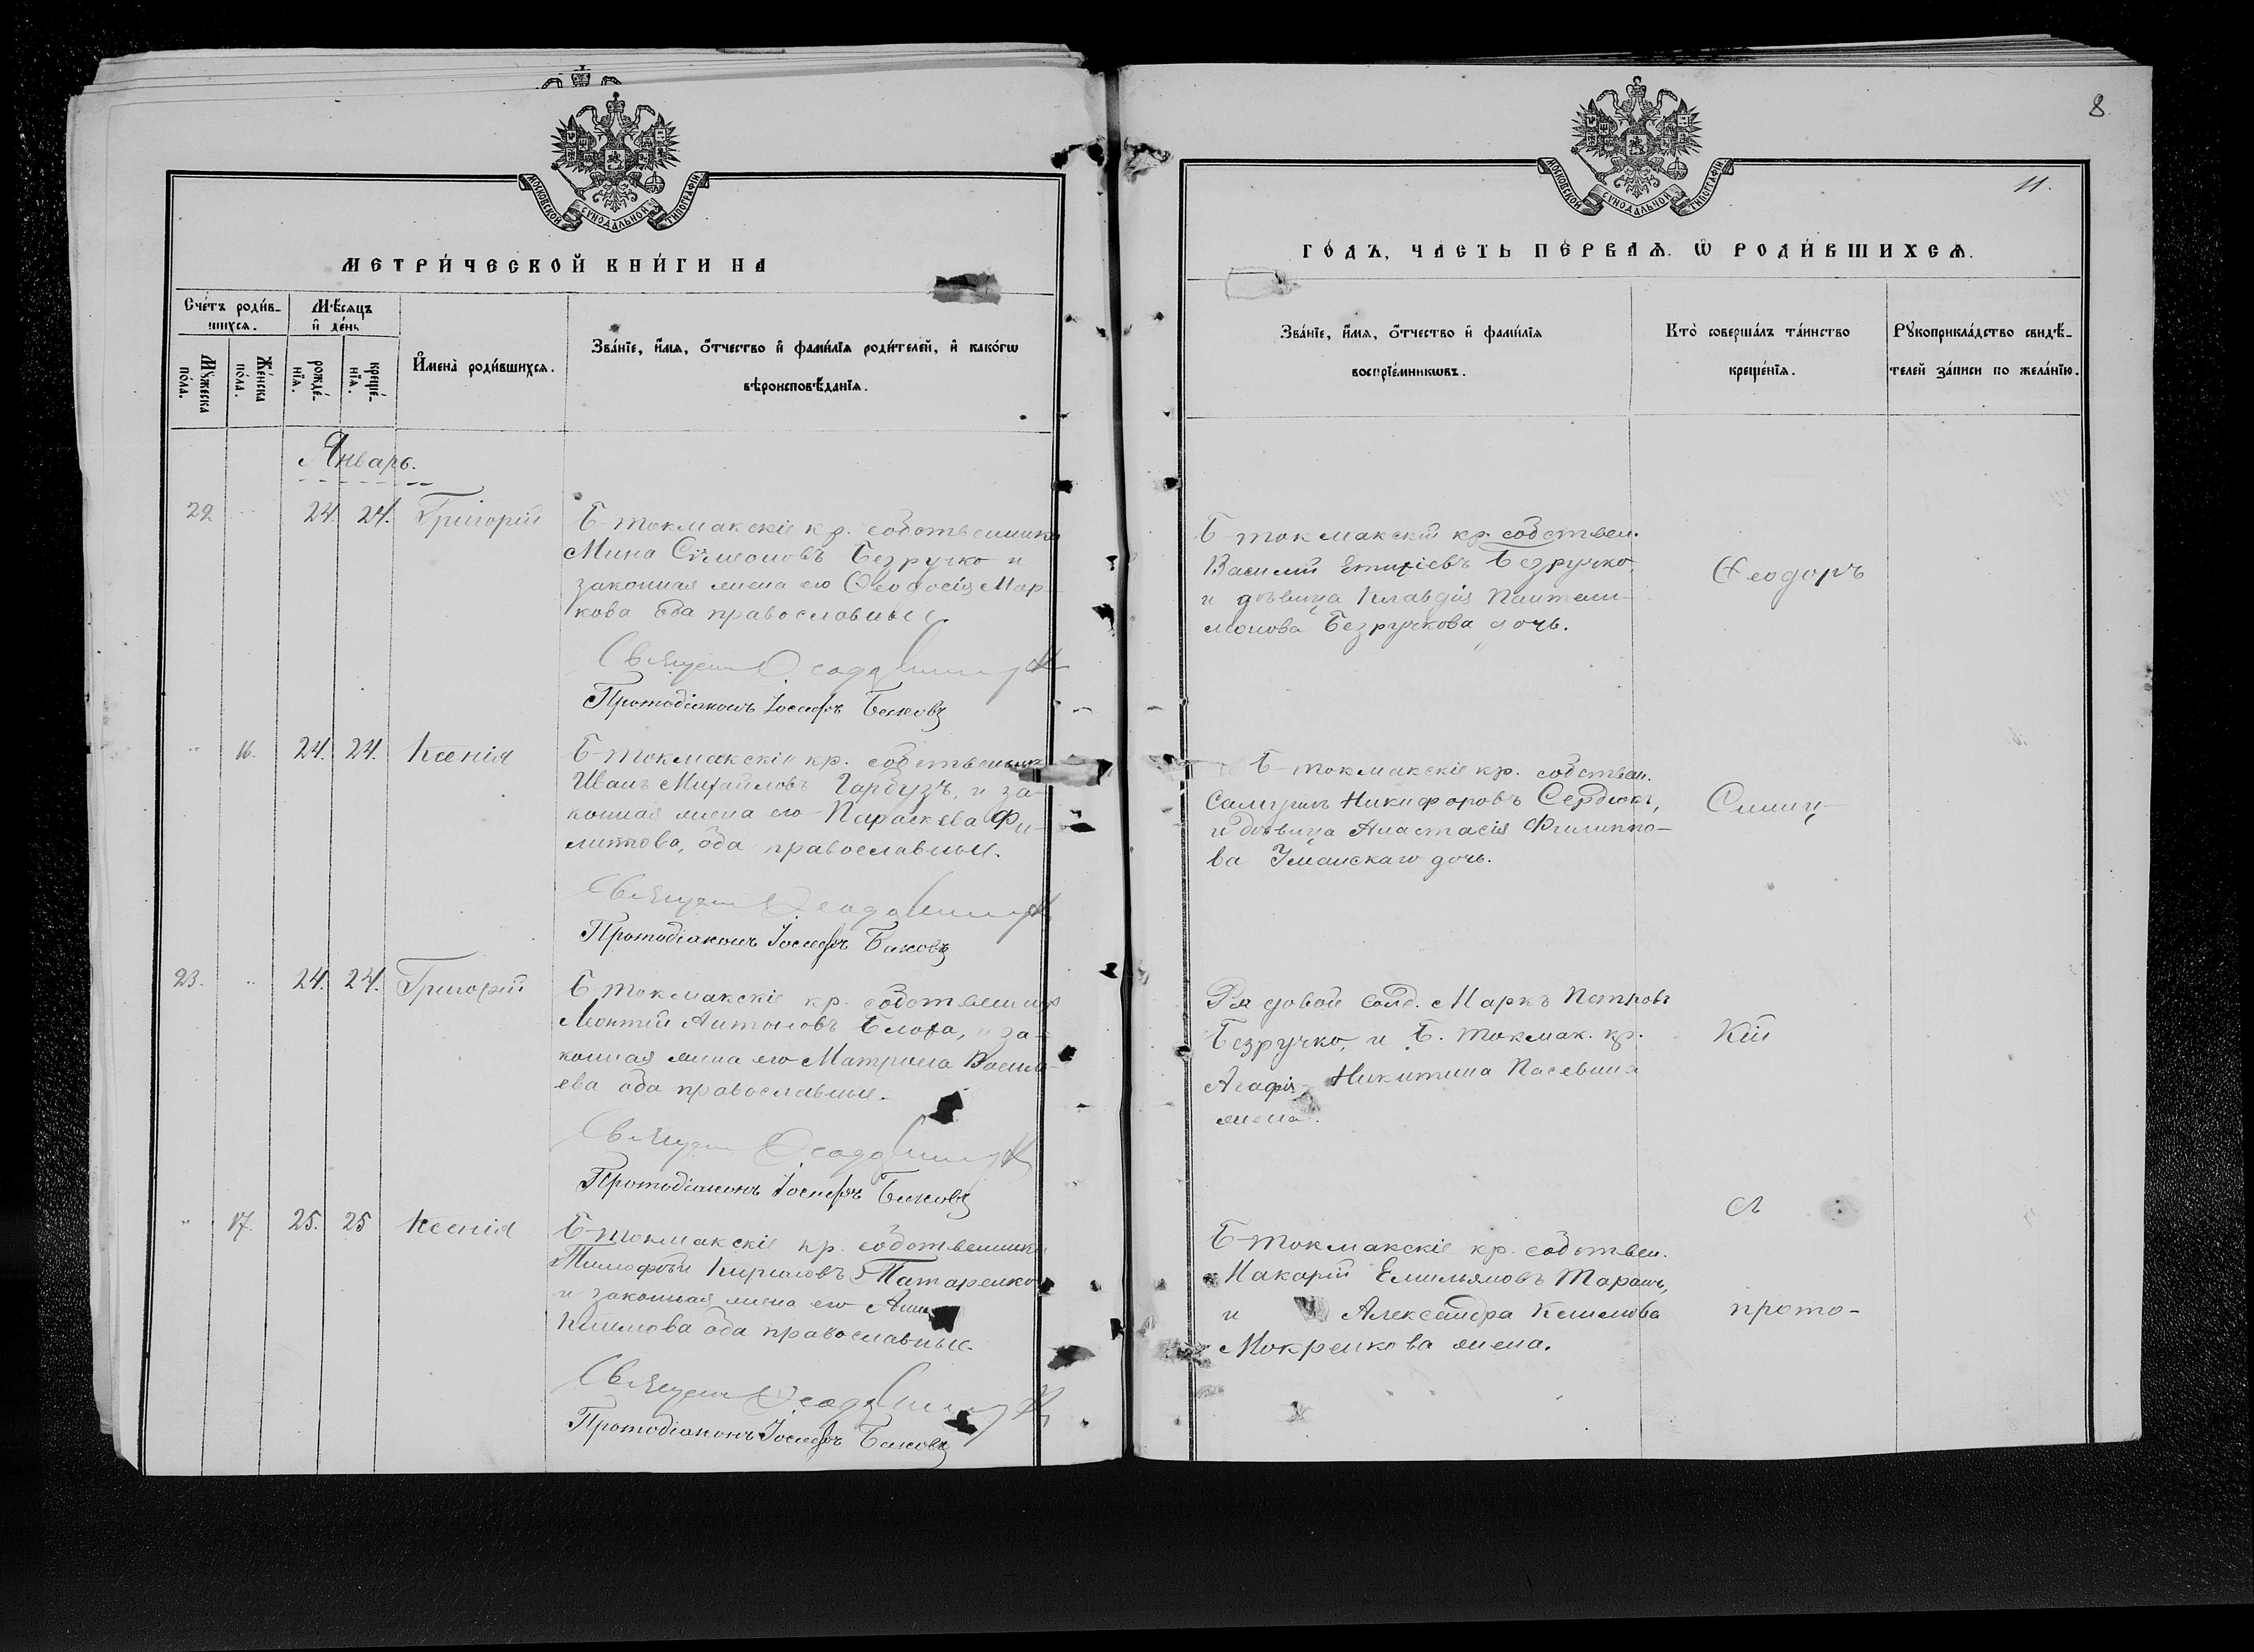 МОСКОВСКОЙ СѴНОДАЛЬНОЙ ТИПОГРАФІИ
МЕТРИ́ЧЕСКОЙ КНИ́ГИ НА
Сче́тъ роди́в-
шихся.
Мѣ́сяцъ
и҆ де́нь
Мꙋ́жеска
по́ла.
Же́нска
по́ла.
рожде́-
нїѧ.
креще́-
нїѧ.
И҆мена̀ роди́вшихсѧ.
Зва́нїе, и҆́мѧ, ѻ҆́тчество и҆ фами́лїѧ роди́телей, и҆ како́гѡ
вѣроисповѣ́данїѧ.
Январь.
22 24. 24. Григорій
Б-токмакскіе кр. собственники
Мина Сѵмеоновъ Безручко и
законная жена его Ѳеодосія Мар-
кова оба православные.
Протодіаконъ Іосифъ
16. 24. 24. Ксенія
Б-токмакскіе кр. собственники
Иванъ Михайловъ Гарбузъ, и за-
конная жена его Параскева Фи-
липпова, оба православные.
Протодіаконъ Іосифъ
23. 24. 24. Григорій
Б-токмакскіе кр. собственники
Леонтій Антоновъ Блоха, и за-
конная жена его Матрона Василь-
ева оба православные.
Протодіаконъ Іосифъ
17. 25. 25 Ксенія
Б-токмакскіе кр. собственники
Тимофѣй Кириловъ Татаренко
и законная жена его Анна
Климова оба православные.
Протодіаконъ Іосифъ
8
11.
МОСКОВСКОЙ СѴНОДАЛЬНОЙ ТИПОГРАФІИ
ГО́ДЪ, ЧА́СТЬ ПЕ́РВАѦ. Ѽ РОДИ́ВШИХСѦ.
Зва́нїе, и҆́мѧ, ѻ҆́тчество и҆ фами́лїѧ
воспрїе́мникѡвъ.
Кто̀ соверша́лъ та́инство
креще́нїѧ.
Рꙋкоприкла́дство свидѣ́-
телей за́писи по жела́нїю.
Б-токмакскій кр. собствен.
Василій Безручко,
и дѣвица Клавдія Пантели-
монова Безручкова дочь.
Ѳеодоръ
Б-токмакскіе кр. собствен.
Самуилъ Никифоровъ Сердюкъ,
и дѣвица Анастасія Филиппо-
ва Уманскаго дочь.
Синиц-
Рядовой солд. Маркъ Петровъ
Безручко, и Б. токмак. кр.
Агафія Никитина
жена.
кій
съ
Б-токмакскіе кр. собствен.
Макарій Емильяновъ Таранъ,
и Александра
Мокренкова жена.
прото-